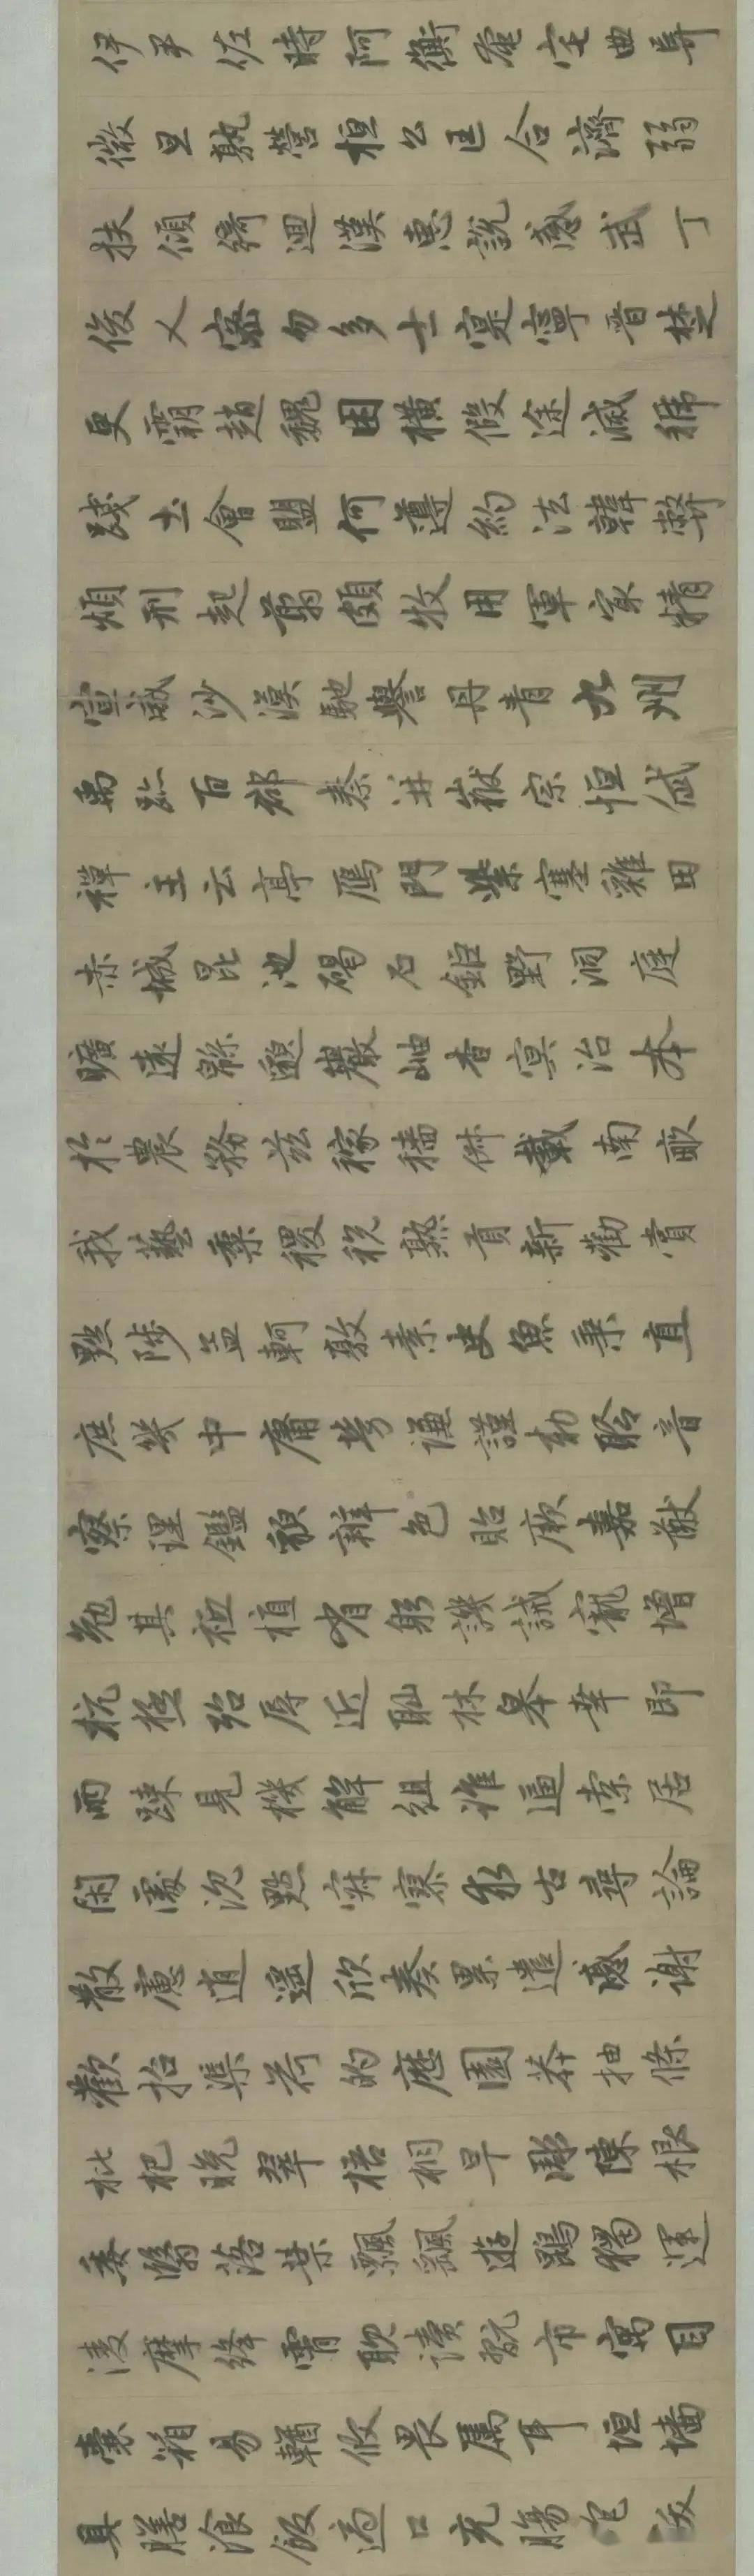 伊尹佐時阿衡奄宅曲阜
微旦孰營桓公匡合濟弱
扶傾綺迴漢惠說感武丁
俊乂密勿多士寔寧晉楚
更霸趙魏困橫假途滅虢
踐土會盟何遵約法韓弊
煩刑起翦頗牧用軍最精
宣威沙漠馳譽丹青九州
禹跡百郡秦并嶽宗恒岱
禪主云亭雁門紫塞雞田
赤城昆池碣石鉅野洞庭
曠遠緜邈巖岫杳冥治本
於農務茲稼穡俶載南畝
我藝黍稷稅熟貢新勸賞
黜陟孟軻敦素史魚秉直
庶幾中庸勞謙謹勑聆音
察理鑑貌辨色貽厥嘉猷
勉其祗植省躬譏誡寵增
抗極殆辱近恥林皋幸即
兩疎見機解組誰逼索居
閑處沉默寂寥求古尋論
散慮逍遙欣奏累遣慼謝
歡招渠荷的歷園莽抽條
枇杷晚翠梧桐早彫陳根
委翳落葉飄颻遊鵾獨運
淩摩絳霄耽讀翫市寓目
囊箱易輶攸畏屬耳垣墻
具膳飡飯適口充腸飽飫